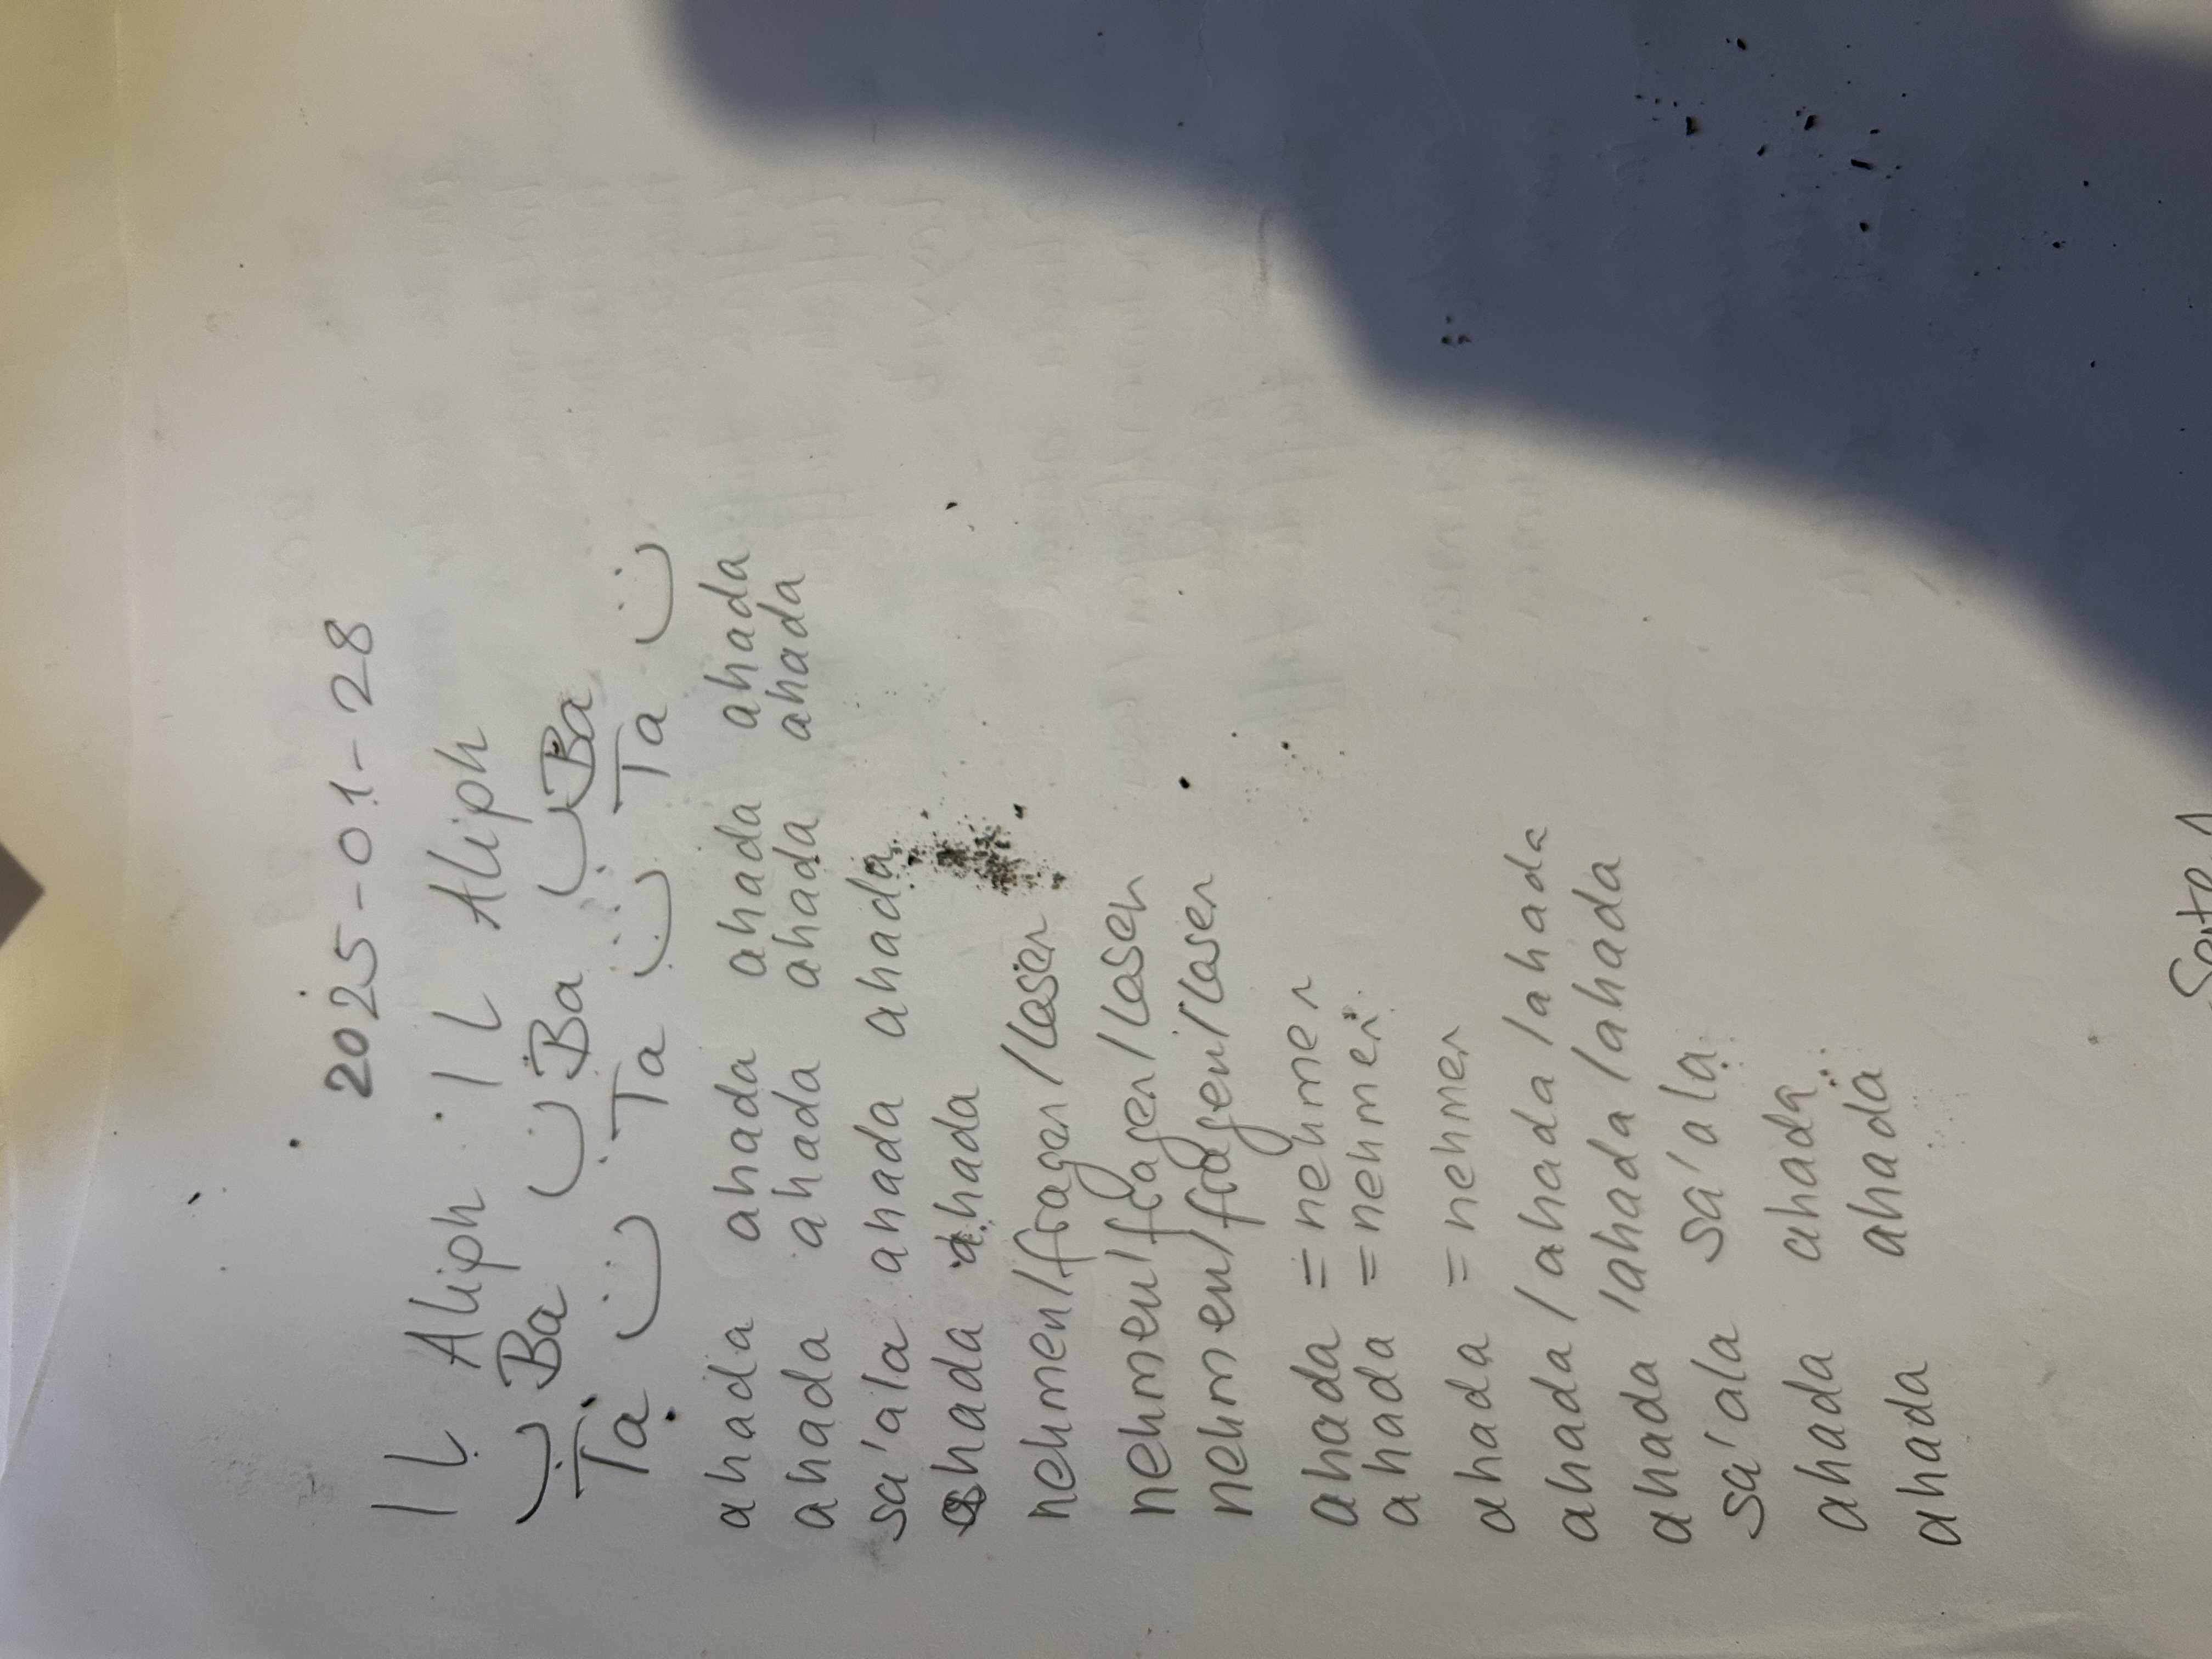 2025-01-28
ا ل Aliph ا ل Aliph ا ل Aliph
ب Ba ب Ba ب Ba
Ta ت Ta ت Ta ت
ahada ahada ahada ahada
ahada ahada ahada ahada
sa'ala ahada ahada
ahada ahada
nehmen/fragen/lasen
nehmen/fragen/lasen
nehmen/fragen/lasen
ahada = nehmen
ahada = nehmen
ahada = nehmen
ahada/ahada/ahada
ahada/ahada/ahada
sa'ala sa'ala
ahada ahada
ahada ahada